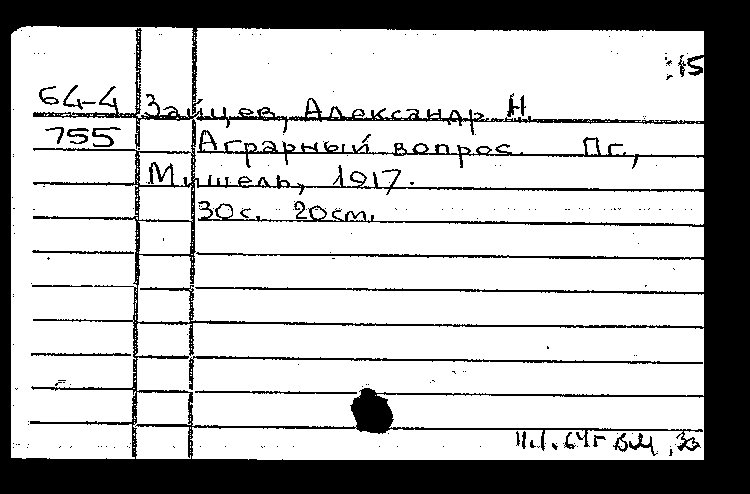 :15
64-4 Зайцев, Александр Н.
755 Аграрный вопрос. Пг.,
Мишель, 1917.
30с. 20см.
11.1.64г